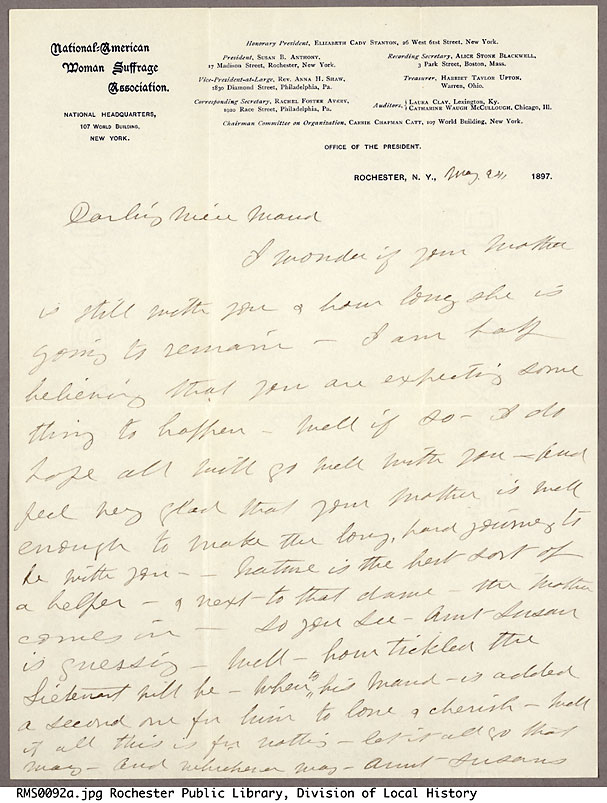 National-American
Woman Suffrage
Association.
NATIONAL HEADQUARTERS,
107 WORLD BUILDING,
NEW YORK.
Honorary President, ELIZABETH CADY STANTON, 26 West 61st Street, New York.
President, SUSAN B. ANTHONY,
17 Madison Street, Rochester, New York.
Vice-President-at-Large, REV. ANNA H. SHAW,
1830 Diamond Street, Philadelphia, Pa.
Corresponding Secretary, RACHEL FOSTER AVERY,
1020 Race Street, Philadelphia, Pa.
Recording Secretary, ALICE STONE BLACKWELL,
3 Park Street, Boston, Mass.
Treasurer, HARRIET TAYLOR UPTON,
Warren, Ohio.
Auditors, { LAURA CLAY, Lexington, Ky.
CATHARINE WAUGH MCCULLOUGH, Chicago, Ill.
Chairman Committee on Organization, CARRIE CHAPMAN CATT, 107 World Building, New York.
OFFICE OF THE PRESIDENT.
ROCHESTER, N. Y., May 24, 1897.
Darling Niece Maud
I wonder if your Mother
is still with you & how long she is
going to remain — I am half
believing that you are expecting some
thing to happen — Well if so — I do
hope all will go well with you — and
feel very glad that your mother is well
enough to make the long, hard journey to
be with you — — Nature is the best sort of
a helper — & next to that dame — the mother
comes in — So you see — Aunt Susan
is guessing — Well — how tickled the
Lieutenant will be — when to his Maud — is added
a second one for him to love & cherish — Well
if all this is for nothing — let it all go that
way — and whichever way — Aunt Susans
RMS0092a.jpg Rochester Public Library, Division of Local History